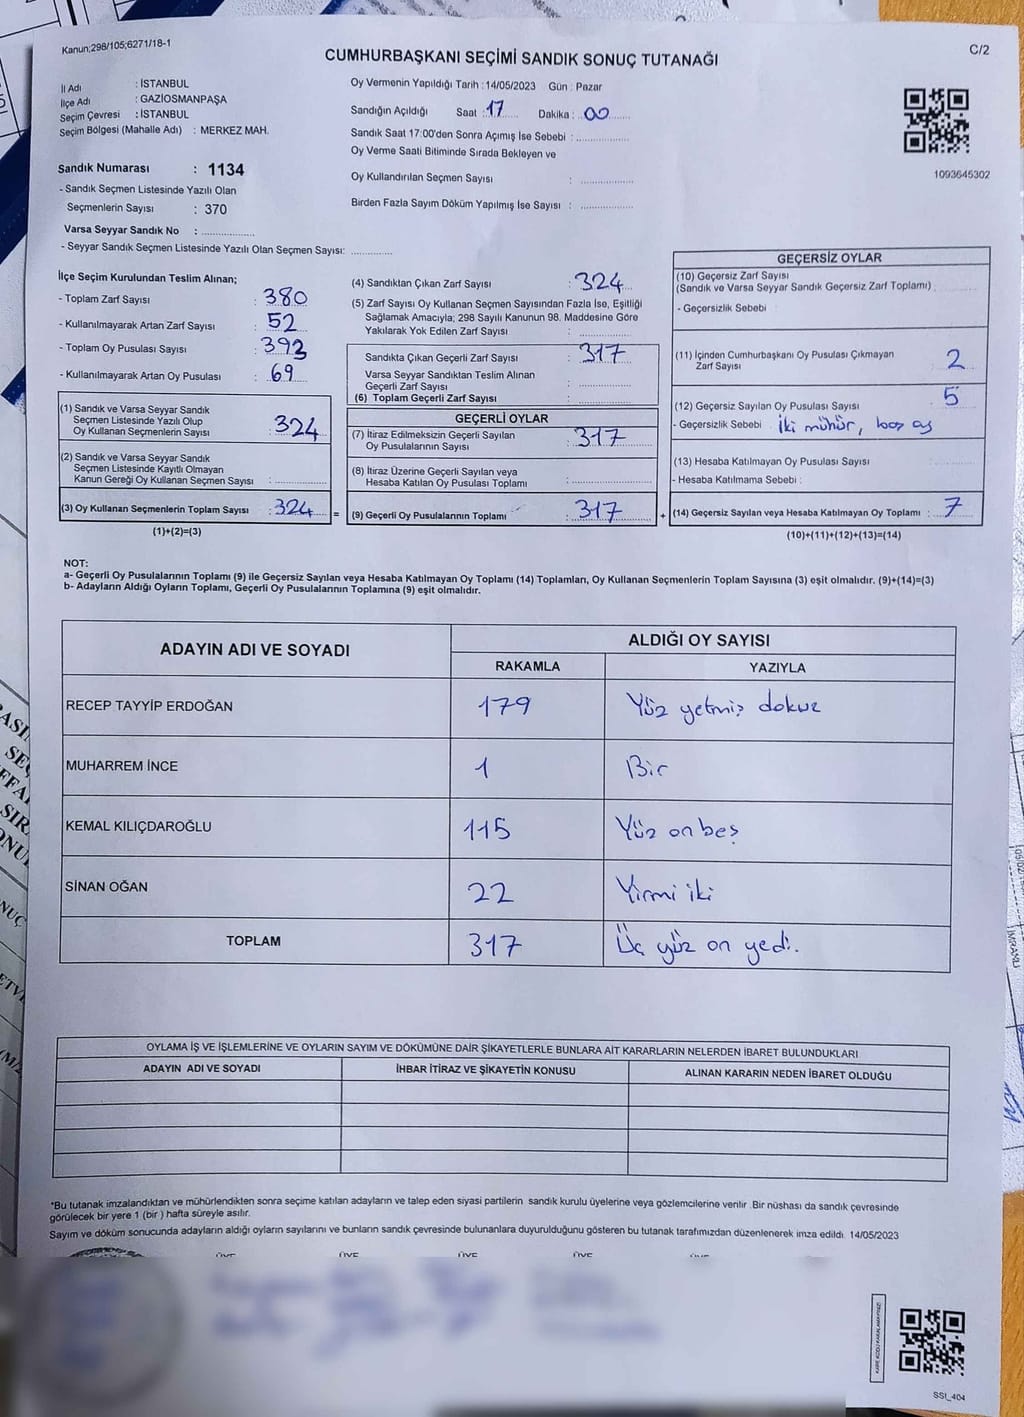 Kanun;298/105;6271/18-1
C/2
CUMHURBAŞKANI SEÇİMİ SANDIK SONUÇ TUTANAĞI
İl Adı : İSTANBUL
İlçe Adı : GAZİOSMANPAŞA
Seçim Çevresi : İSTANBUL
Seçim Bölgesi (Mahalle Adı) : MERKEZ MAH.
Oy Vermenin Yapıldığı Tarih : 14/05/2023 Gün : Pazar
Sandığın Açıldığı Saat : 17 Dakika : 00
Sandık Saat 17:00'den Sonra Açımış İse Sebebi :
Oy Verme Saati Bitiminde Sırada Bekleyen ve
Oy Kullandırılan Seçmen Sayısı :
Birden Fazla Sayım Döküm Yapılmış İse Sayısı :
1093645302
Sandık Numarası : 1134
- Sandık Seçmen Listesinde Yazılı Olan
Seçmenlerin Sayısı : 370
Varsa Seyyar Sandık No :
- Seyyar Sandık Seçmen Listesinde Yazılı Olan Seçmen Sayısı:
İlçe Seçim Kurulundan Teslim Alınan;
- Toplam Zarf Sayısı : 380
- Kullanılmayarak Artan Zarf Sayısı : 52
- Toplam Oy Pusulası Sayısı : 393
- Kullanılmayarak Artan Oy Pusulası : 69
(1) Sandık ve Varsa Seyyar Sandık
Seçmen Listesinde Yazılı Olup
Oy Kullanan Seçmenlerin Sayısı 324
(2) Sandık ve Varsa Seyyar Sandık
Seçmen Listesinde Kayıtlı Olmayan
Kanun Gereği Oy Kullanan Seçmen Sayısı :
(3) Oy Kullanan Seçmenlerin Toplam Sayısı : 324 =
(1)+(2)=(3)
(4) Sandıktan Çıkan Zarf Sayısı : 324
(5) Zarf Sayısı Oy Kullanan Seçmen Sayısından Fazla İse, Eşitliği
Sağlamak Amacıyla; 298 Sayılı Kanunun 98. Maddesine Göre
Yakılarak Yok Edilen Zarf Sayısı :
Sandıkta Çıkan Geçerli Zarf Sayısı : 317
Varsa Seyyar Sandıktan Teslim Alınan
Geçerli Zarf Sayısı :
(6) Toplam Geçerli Zarf Sayısı :
GEÇERLİ OYLAR
(7) İtiraz Edilmeksizin Geçerli Sayılan
Oy Pusulasının Sayısı : 317
(8) İtiraz Üzerine Geçerli Sayılan veya
Hesaba Katılan Oy Pusulası Toplamı :
(9) Geçerli Oy Pusulalarının Toplamı : 317 +
GEÇERSİZ OYLAR
(10) Geçersiz Zarf Sayısı
(Sandık ve Varsa Seyyar Sandık Geçersiz Zarf Toplamı)
- Geçersizlik Sebebi
(11) İçinden Cumhurbaşkanı Oy Pusulası Çıkmayan
Zarf Sayısı 2
(12) Geçersiz Sayılan Oy Pusulası Sayısı 5
- Geçersizlik Sebebi İki mühür, boş oy
(13) Hesaba Katılmayan Oy Pusulası Sayısı
- Hesaba Katılmama Sebebi :
(14) Geçersiz Sayılan veya Hesaba Katılmayan Oy Toplamı : 7
(10)+(11)+(12)+(13)=(14)
NOT:
a- Geçerli Oy Pusulalarının Toplamı (9) ile Geçersiz Sayılan veya Hesaba Katılmayan Oy Toplamı (14) Toplamları, Oy Kullanan Seçmenlerin Toplam Sayısına (3) eşit olmalıdır. (9)+(14)=(3)
b- Adayların Aldığı Oyların Toplamı, Geçerli Oy Pusulalarının Toplamına (9) eşit olmalıdır.
ADAYIN ADI VE SOYADI
ALDIĞI OY SAYISI
RAKAMLA YAZIYLA
RECEP TAYYİP ERDOĞAN 179 Yüz yetmiş dokuz
MUHARREM İNCE 1 Bir
KEMAL KILIÇDAROĞLU 115 Yüz on beş
SİNAN OĞAN 22 Yirmi iki
TOPLAM 317 Üç yüz on yedi.
OYLAMA İŞ VE İŞLEMLERİNE VE OYLARIN SAYIM VE DÖKÜMÜNE DAİR ŞİKAYETLERLE BUNLARA AİT KARARLARIN NELERDEN İBARET BULUNDUKLARI
ADAYIN ADI VE SOYADI İHBAR İTİRAZ VE ŞİKAYETİN KONUSU ALINAN KARARIN NEDEN İBARET OLDUĞU
*Bu tutanak imzalandıktan ve mühürlendikten sonra seçime katılan adayların ve talep eden siyasi partilerin sandık kurulu üyelerine veya gözlemcilerine verilir .Bir nüshası da sandık çevresinde
görülecek bir yere 1 (bir ) hafta süreyle asılır.
Sayım ve döküm sonucunda adayların aldığı oyların sayılarını ve bunların sandık çevresinde bulunanlara duyurulduğunu gösteren bu tutanak tarafımızdan düzenlenerek imza edildi. 14/05/2023
SSI_404